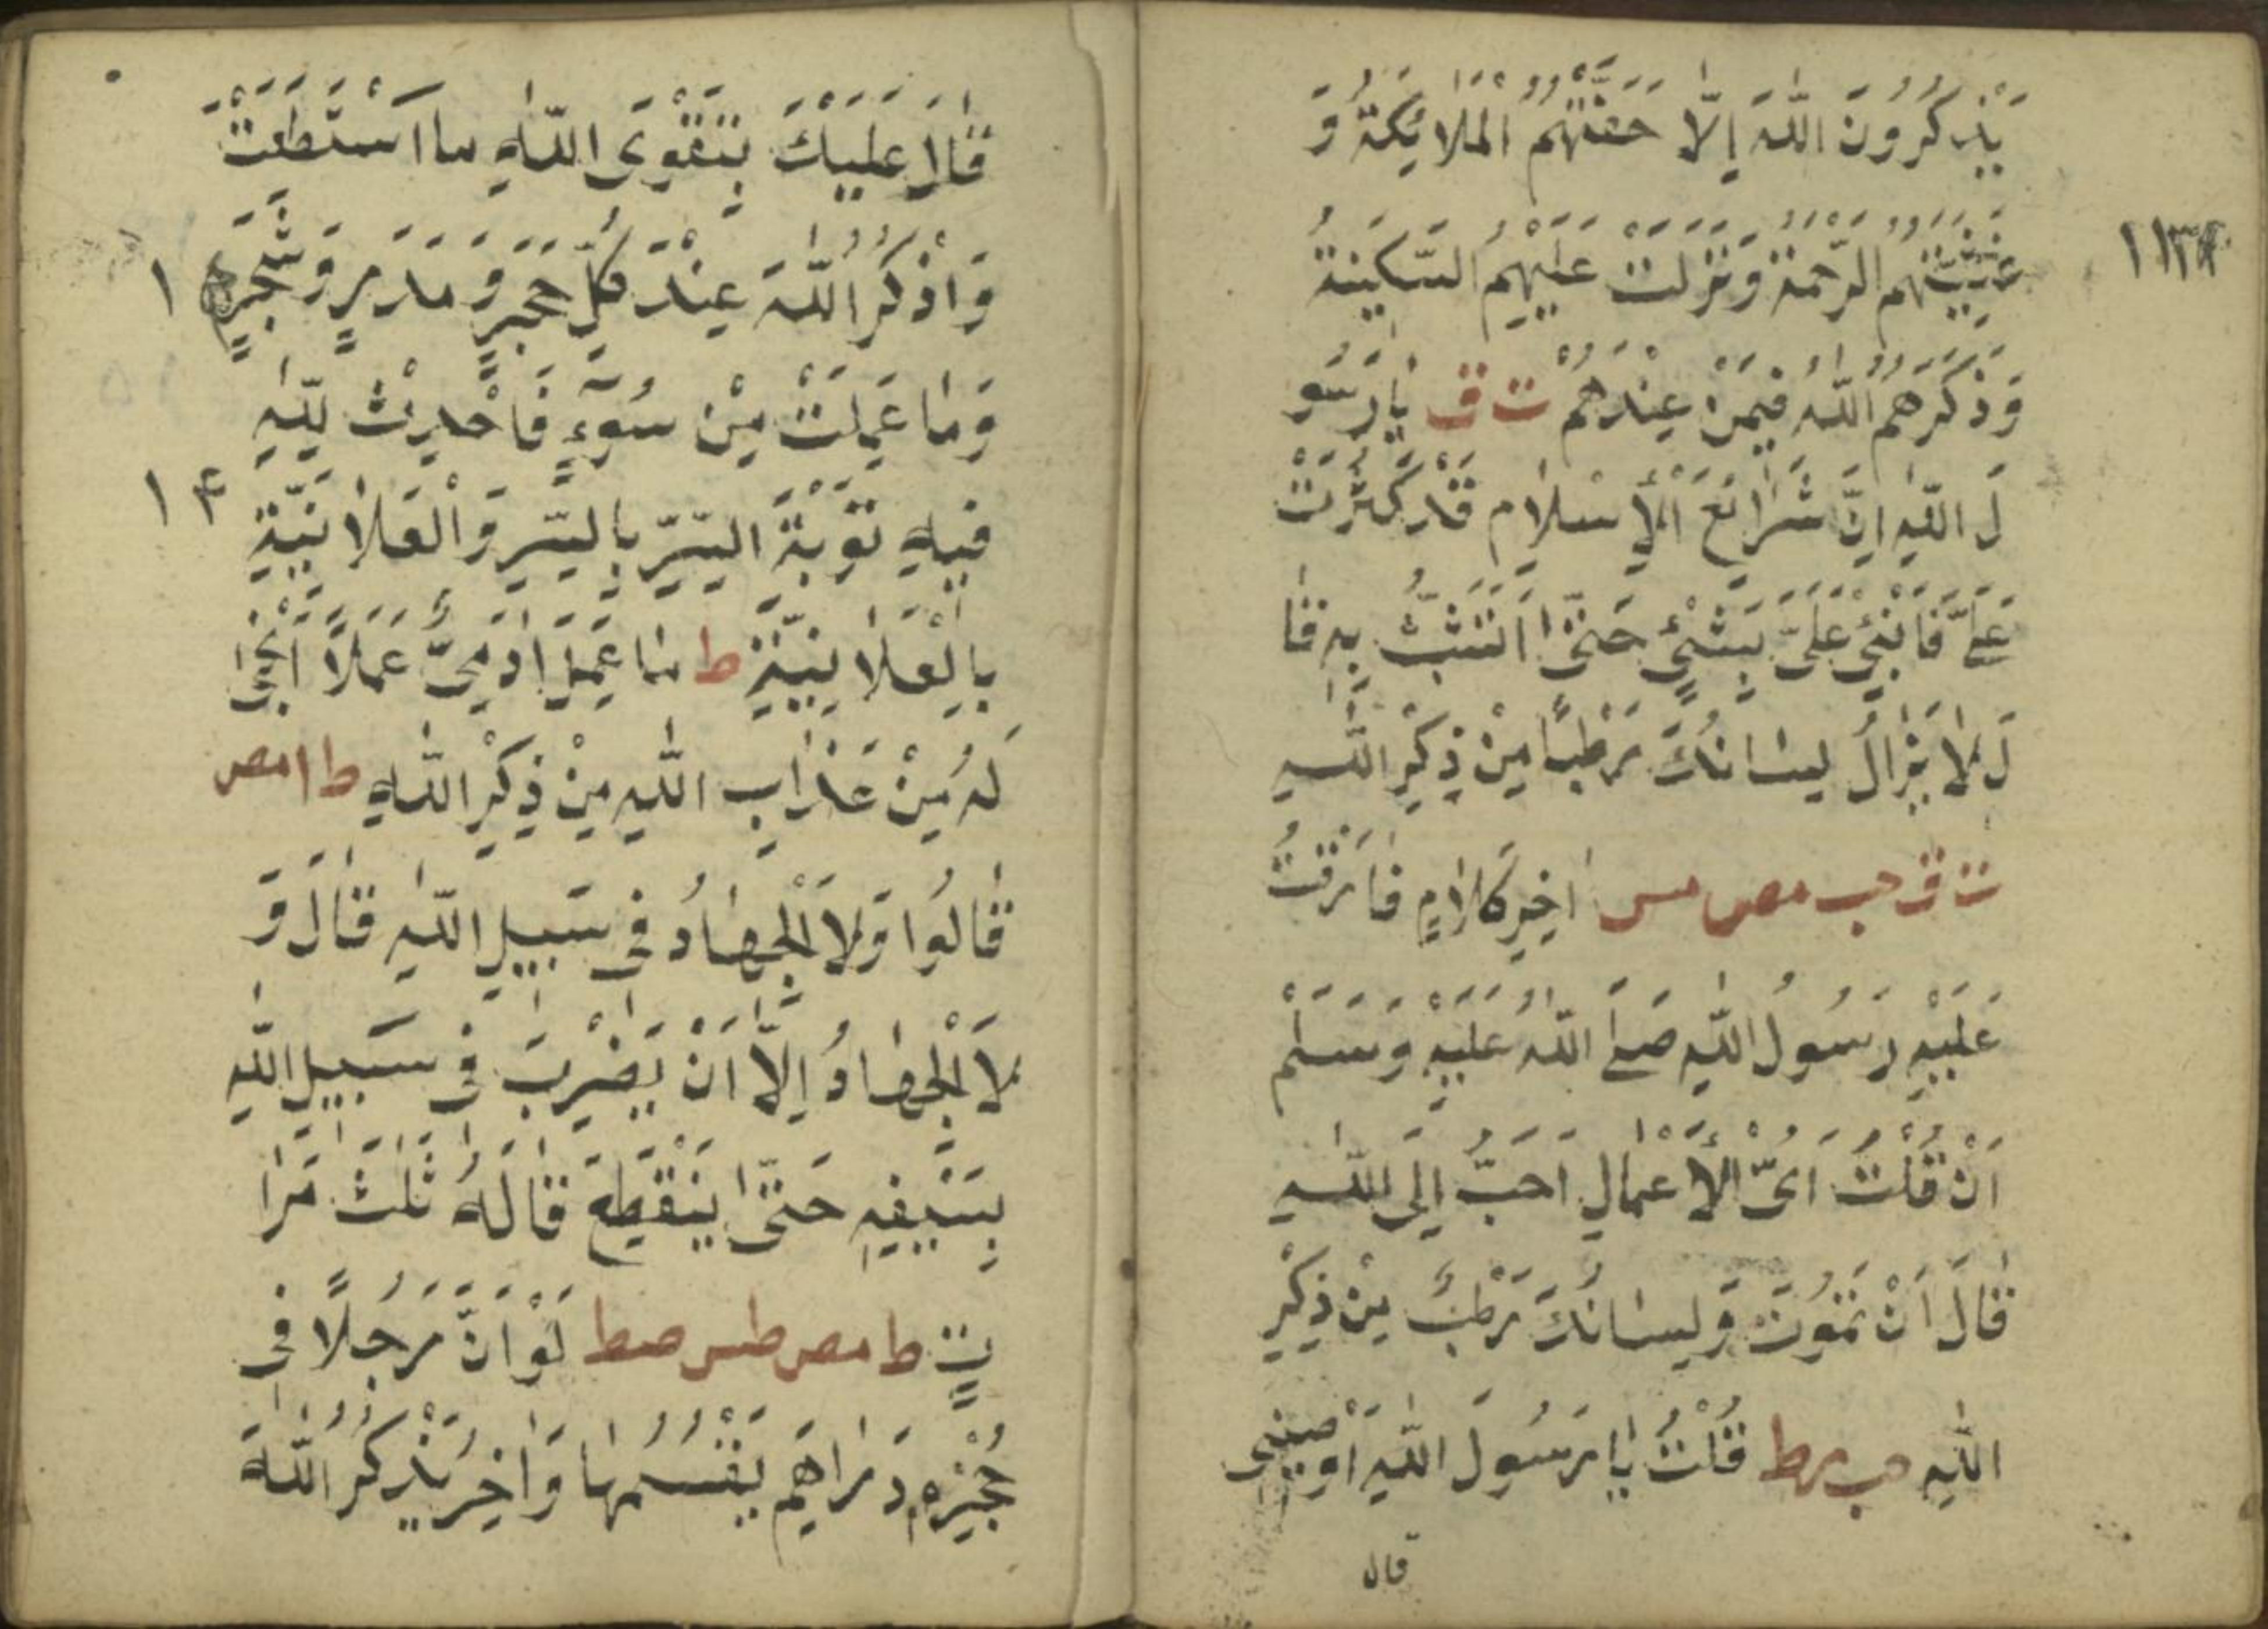 يَذْكُرُونَ اللّٰهَ اِلَّا حَفَّتْهُمُ الْمَلَائِكَةُ وَ
غَشِيَتْهُمُ الرَّحْمَةُ وَنَزَلَتْ عَلَيْهِمُ السَّكِينَةُ
وَذَكَرَهُمُ اللّٰهُ فِيمَنْ عِنْدَهُمْ ت ق يَا رَسُو
لَ اللّٰهِ اِنَّ شَرَائِعَ الْاِسْلَامِ قَدْ كَثُرَتْ
عَلَيَّ فَاَنْبِئْ عَلَيَّ بِشَيْءٍ حَتّٰى اَتَشَبَّثُ بِهٖ قَا
لَ لَا يَزَالُ لِسَانُكَ رَطْبًا مِنْ ذِكْرِ اللّٰهِ
ت ق حب مص مس اٰخِرِ كَلَامٍ فَارَقْتُ
عَلَيْهِ رَسُولُ اللّٰهِ صَلَّى اللّٰهُ عَلَيْهِ وَسَلَّمَ
اَنْ قُلْتُ اَيُّ الْاَعْمَالِ اَحَبُّ اِلَى اللّٰهِ
قَالَ اَنْ تَمُوتَ وَلِسَانُكَ رَطْبٌ مِنْ ذِكْرِ
اللّٰهِ حب ر ط قُلْتُ يَا رَسُولَ اللّٰهِ اَوْصِنِي
قال
قَالَ عَلَيْكَ بِتَقْوَى اللّٰهِ مَا اسْتَطَعْتَ
وَاذْكُرِ اللّٰهَ عِنْدَ كُلِّ حَجَرٍ وَمَدَرٍ وَشَجَرٍ ١
وَمَا عَمِلْتَ مِنْ سُوءٍ فَاَحْدِثْ لِلّٰهِ
فِيهِ تَوْبَةَ السِّرِّ بِالسِّرِّ وَالْعَلَانِيَةِ
بِالْعَلَانِيَةِ ط مَا عَمِلَ اٰدَمِيٌّ عَمَلًا اَنْجٰى
لَهُ مِنْ عَذَابِ اللّٰهِ مِنْ ذِكْرِ اللّٰهِ ط ا مص
قَالُوا وَلَا الْجِهَادُ فِي سَبِيلِ اللّٰهِ قَالَ وَ
لَا الْجِهَادُ اِلَّا اَنْ يَضْرِبَ فِي سَبِيلِ اللّٰهِ
بِسَيْفِهٖ حَتّٰى يَنْقَطِعَ قَالَهُ ثَلٰثَ مَرَّا
تٍ ط مص طس صط لَوْ اَنَّ رَجُلًا فِي
حُجْرِهٖ دَرَاهِمُ يَقْسُمُهَا وَاٰخَرُ يَذْكُرُ اللّٰهَ